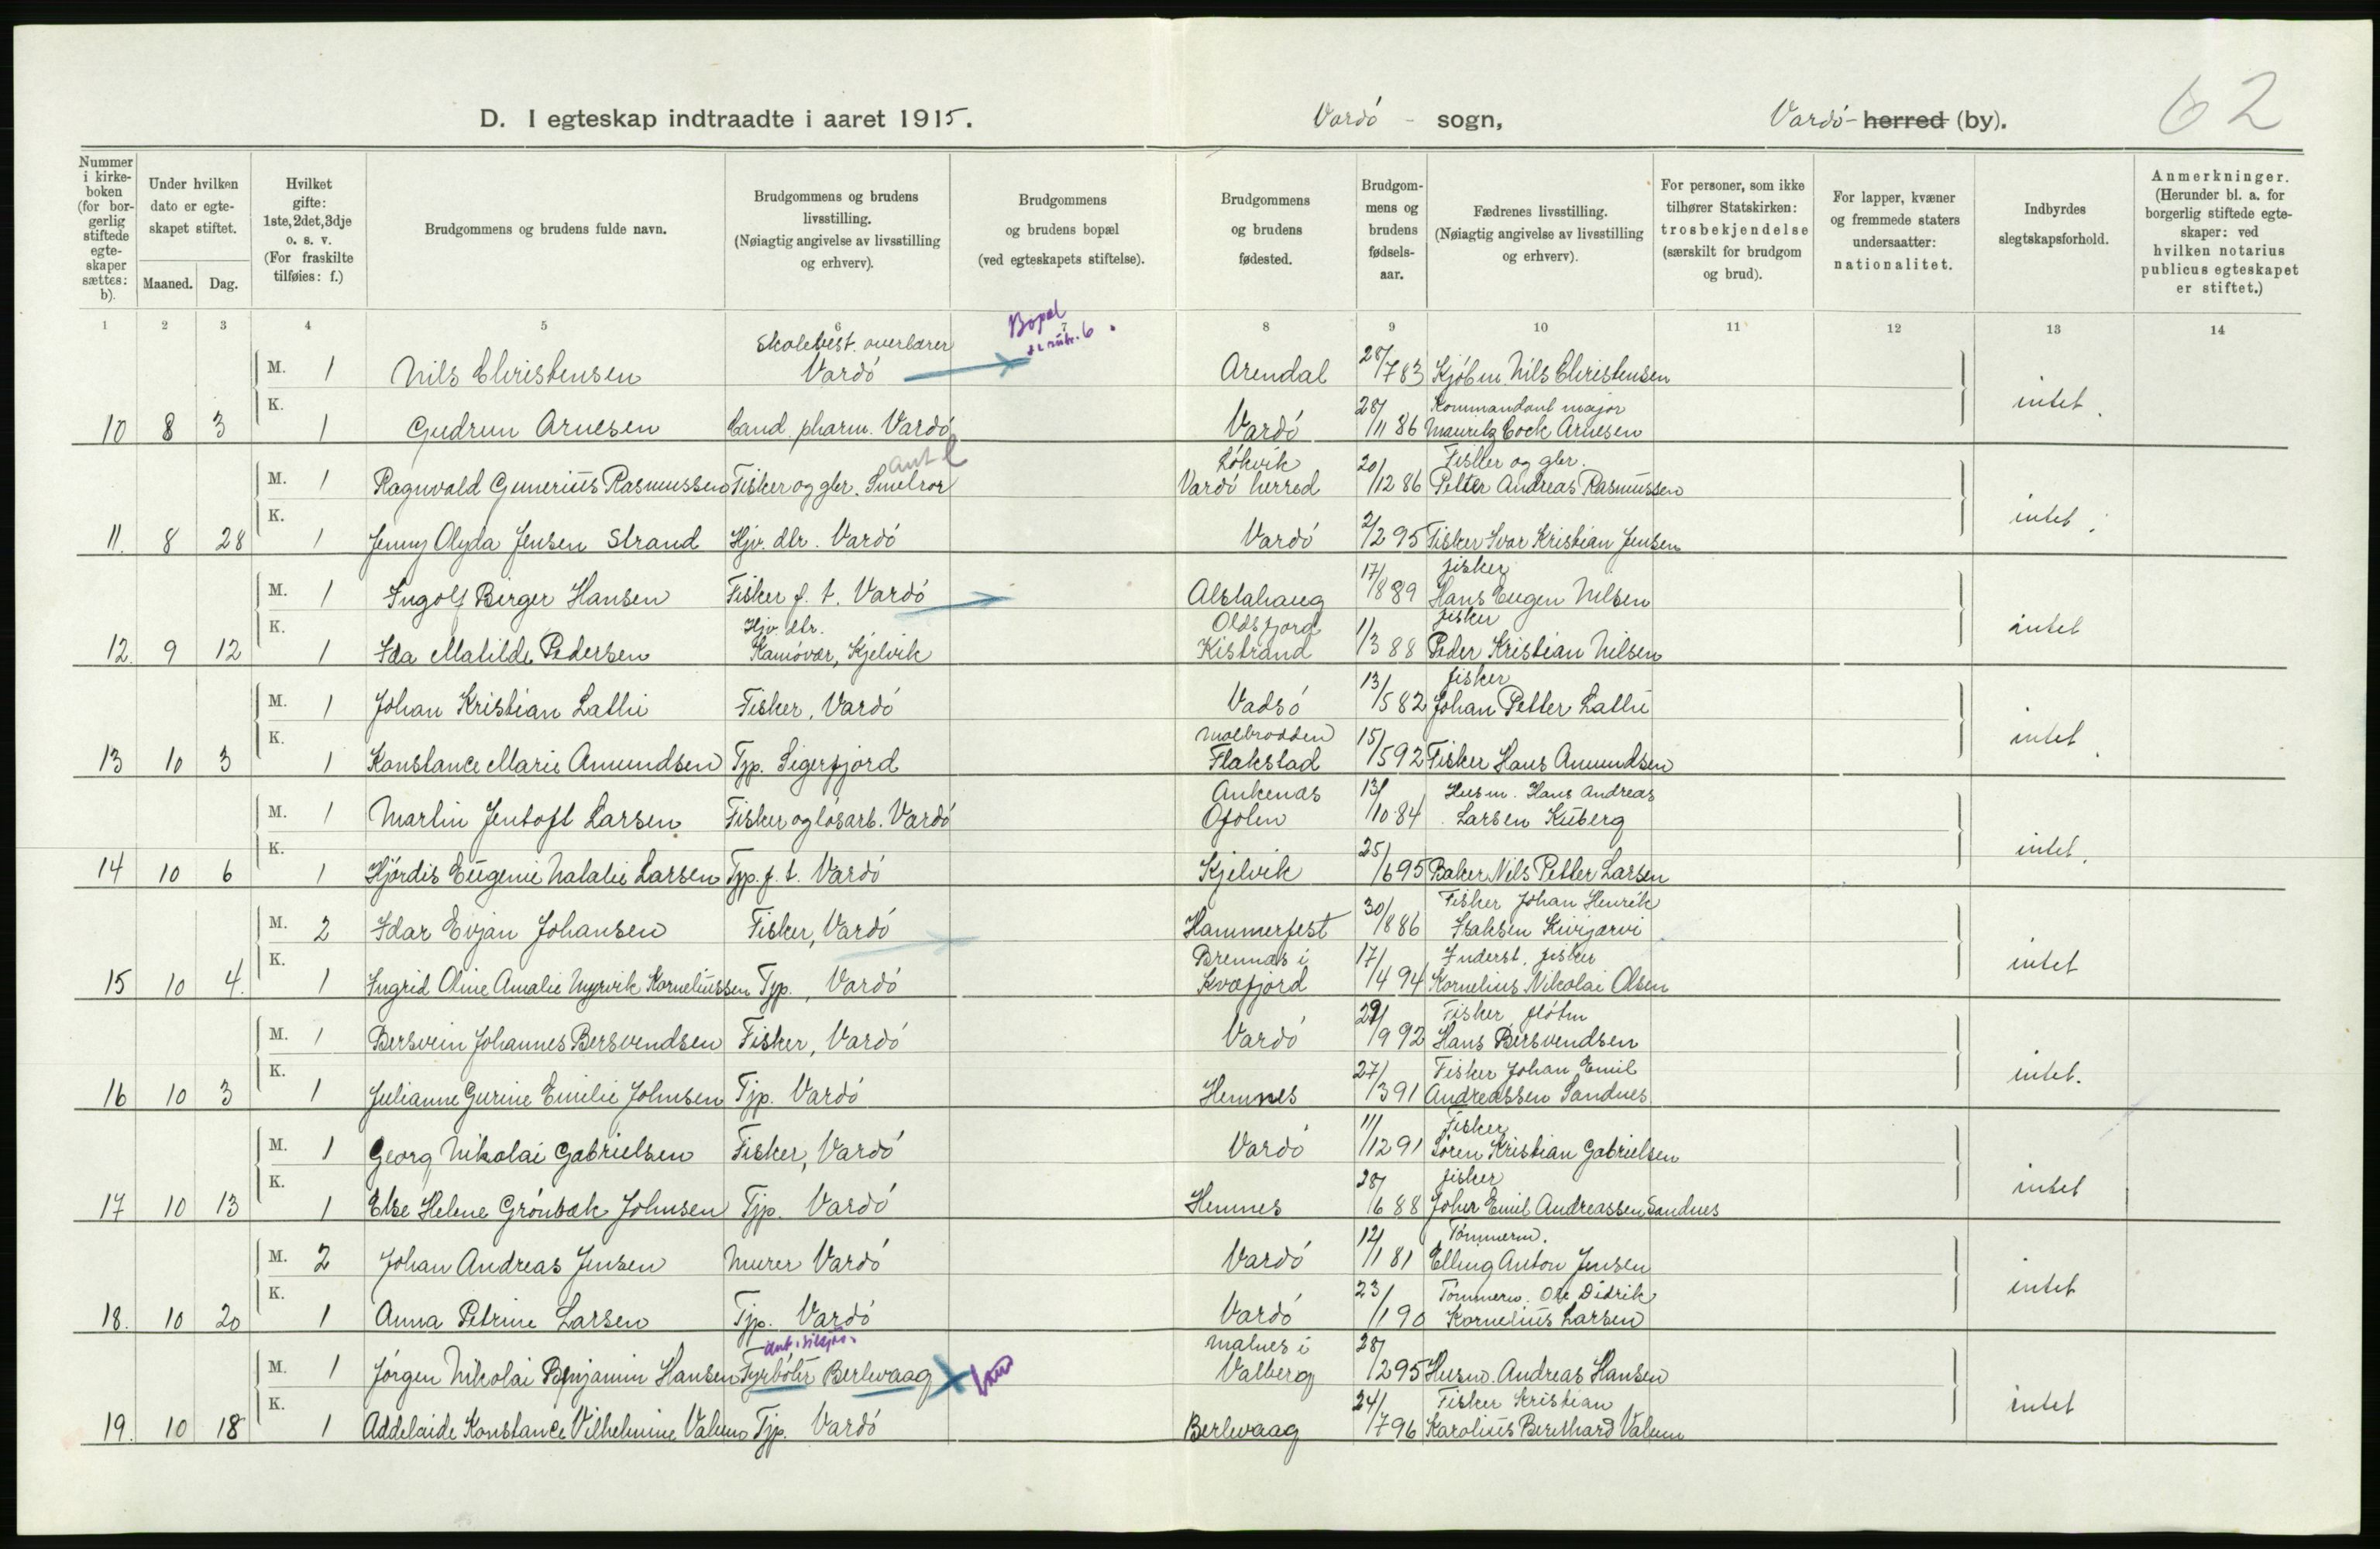 D. I egteskap indtraadte i aaret 1915.
Vardó - sogn,
Vardó - herred (by).
62
Nummer i kirkeboken (for borgerlig stiftede egteskaper sættes: b).
Under hvilken dato er egteskapet stiftet.
Maaned.
Dag.
Hvilket gifte: 1ste, 2det, 3dje o. s. v. (For fraskilte tilføies: f.)
Brudgommens og brudens fulde navn.
Brudgommens og brudens livsstilling. (Nøiagtig angivelse av livsstilling og erhverv).
Brudgommens og brudens bopæl (ved egteskapets stiftelse).
Brudgommens og brudens fødested.
Brudgommens og brudens fødselsaar.
Fædrenes livsstilling. (Nøiagtig angivelse av livsstilling og erhverv).
For personer, som ikke tilhører Statskirken: trosbekjendelse (særskilt for brudgom og brud).
For lapper, kvæner og fremmede staters undersaatter: nationalitet.
Indbyrdes slegtskapsforhold.
Anmerkninger. (Herunder bl. a. for borgerlig stiftede egteskaper: ved hvilken notarius publicus egteskapet er stiftet.)
1 2 3 4 5 6 7 8 9 10 11 12 13 14
Bopæl se rubr. 6.
Skolebest. overlærer
M. 1 Nils Christensen Vardó Arendal 28/7 83 Kjóbm. Nils Christensen
Kommandant major
10 8 3 K. 1 Gudrun Arnesen Cand. pharm. Vardó Vardó 28/11 86 Mauritz Cock Arnesen intet.
ant l
Lókvik Fisker og gbr.
M. 1 Ragnvald Gunerius Rasmussen Fisker og gbr. Smelror Vardó herred 20/12 86 Petter Andreas Rasmussen
11. 8 28 K. 1 Jenny Alyda Jensen Strand Hjv. dtr. Vardó Vardó 2/2 95 Fisker Ivar Kristian Jensen intet.
fisker
M. 1 Ingolf Birger Hansen Fisker f. t. Vardó Alstahaug 17/8 89 Hans Eugen Nilsen
Hjv. dtr. Oldsfjord fisker
12. 9 12 K. 1 Ida Matilde Pedersen Kamóvær, Kjelvik Kistrand 1/3 88 Peder Kristian Nilsen intet
fisker
M. 1 Johan Kristian Lathi Fisker, Vardó Vadsó 13/5 82 Johan Petter Lathi
13 10 3 K. 1 Konstance Marie Amundsen Tjp. Sigerfjord Flakstad 15/5 92 Fisker Hans Amundsen intet
Ankenæs Husm. Hans Andreas
M. 1 Martin Jentoft Larsen Fisker og lósarb. Vardó Ofoten 13/10 84 Larsen Kiberg
14 10 6 K. 1 Hjórdis Eugenie Natalie Larsen Tjp. f. t. Vardó Kjelvik 25/6 95 Baker Nils Petter Larsen intet.
Fisker Johan Henrik
M. 2 Idar Evjan Johansen Fisker, Vardó Hammerfest 30/8 86 Isaksen Kivijærvi
Brennæs i Inderst. fisker
15 10 4. K. 1 Ingrid Oline Amalie Myrvik Korneliussen Tjp., Vardó Kvæfjord 17/4 94 Kornelius Nikolai Olsen intet
Fisker flótm
M. 1 Bersvein Johannes Bersvendsen Fisker, Vardó Vardó 29/9 92 Hans Bersvendsen
Fisker Johan Emil
16 10 3 K. 1 Julianne Gurine Emilie Johnsen Tjp. Vardó Hemnes 27/3 91 Andreassen Sandnes intet.
Fisker
M. 1 Georg Nikolai Gabrielsen Fisker, Vardó Vardó 11/12 91 Sóren Kristian Gabrielsen
fisker
17 10 13 K. 1 Else Helene Grónbæk Johnsen Tjp. Vardó Hemnes 28/6 88 Johan Emil Andreassen Sandnes intet
Tómmerm.
M. 2 Johan Andreas Jensen Murer Vardó Vardó 12/1 81 Elling Anton Jensen
Tómmerm. Ole Didrik
18. 10 20 K. 1 Anna Petrine Larsen Tjp. Vardó Vardó 23/1 90 Kornelius Larsen intet
Malnes i
M. 1 Jórgen Nikolai Benjamin Hansen Fyrbóter Berlevaag Valberg 28/2 95 Husm. Andreas Hansen
Fisker Kristian
19. 10 18 K. 1 Addelaide Konstance Vilhelmine Valum Tjp. Vardó Berlevaag 24/7 96 Karolius Bernthard Valum intet